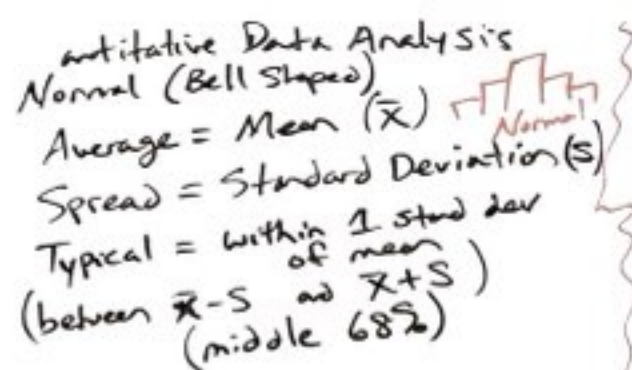 antitative Data Analysis
Normal (Bell Shaped)
Average = Mean (x̄)
Normal
Spread = Standard Deviation (s)
Typical = within 1 stand dev
of mean
(between x̄-s and x̄+s)
(middle 68%)